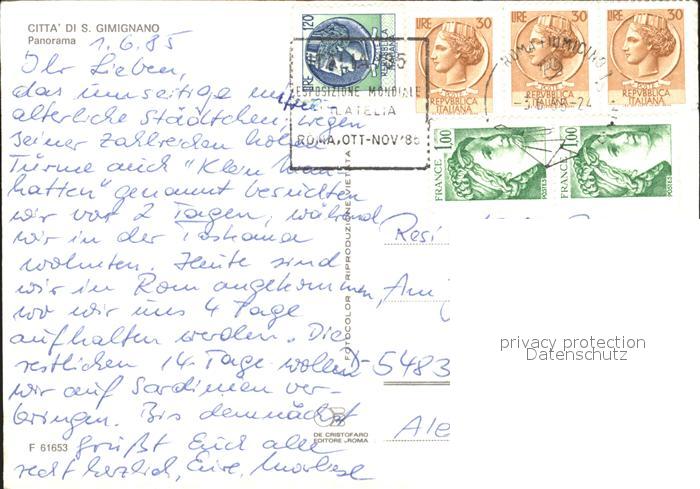 CITTA' DI S. GIMIGNANO
Panorama
1.6.85
Ihr Lieben,
das umseitige mittel-
alterliche Städtchen, wegen
seiner zahlreichen hohen
Türme auch "Klein Man-
hatten" genannt besuchten
wir vor 2 Tagen, während
wir in der Toskana
wohnten. Heute sind
wir in Rom angekommen,
wo wir uns 4 Tage
aufhalten werden. Die
restlichen 14 Tage wollen
wir auf Sardinien ver-
bringen. Bis demnächst
grüßt Euch alle
recht herzlich, Eure Marliese
F 61653
FOTOCOLOR - RIPRODUZIONE VIETATA
DE CRISTOFARO
EDITORE - ROMA
LIRE 120
LIRE 30
REPVBBLICA
ITALIANA
LIRE 30
REPVBBLICA
ITALIANA
LIRE 30
REPVBBLICA
ITALIANA
ITALIA '85
ESPOSIZIONE MONDIALE
FILATELIA
ROMA, OTT-NOV '85
ROMA FIUMICINO
FRANCE 1,00
POSTES
FRANCE 1,00
POSTES
Resi
Am
D-5483
Ale
privacy protection
Datenschutz